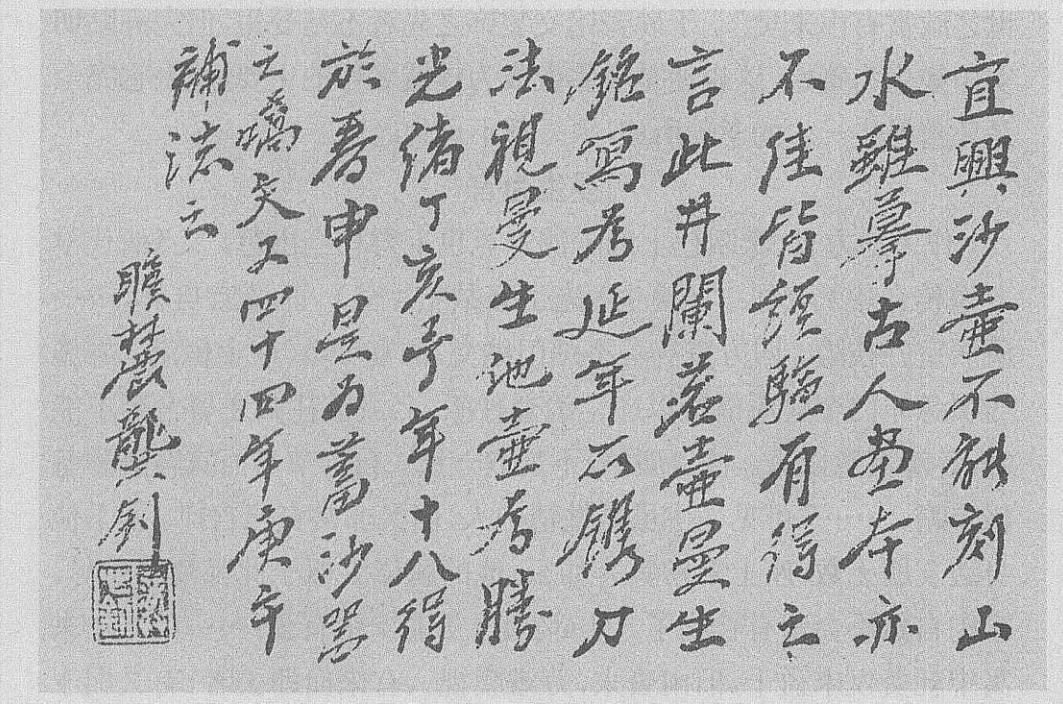 宜興沙壺不能刻山
水雖摹古人畫本亦
不佳皆經驗有得之
言此井闌茗壺曼生
銘寫為延年所鐫刀
法視曼生他壺為勝
光緒丁亥予年十八得
於春申是為蓄沙器
之嚆矢又四十四年庚午
補誌之
瞻麓龔釗